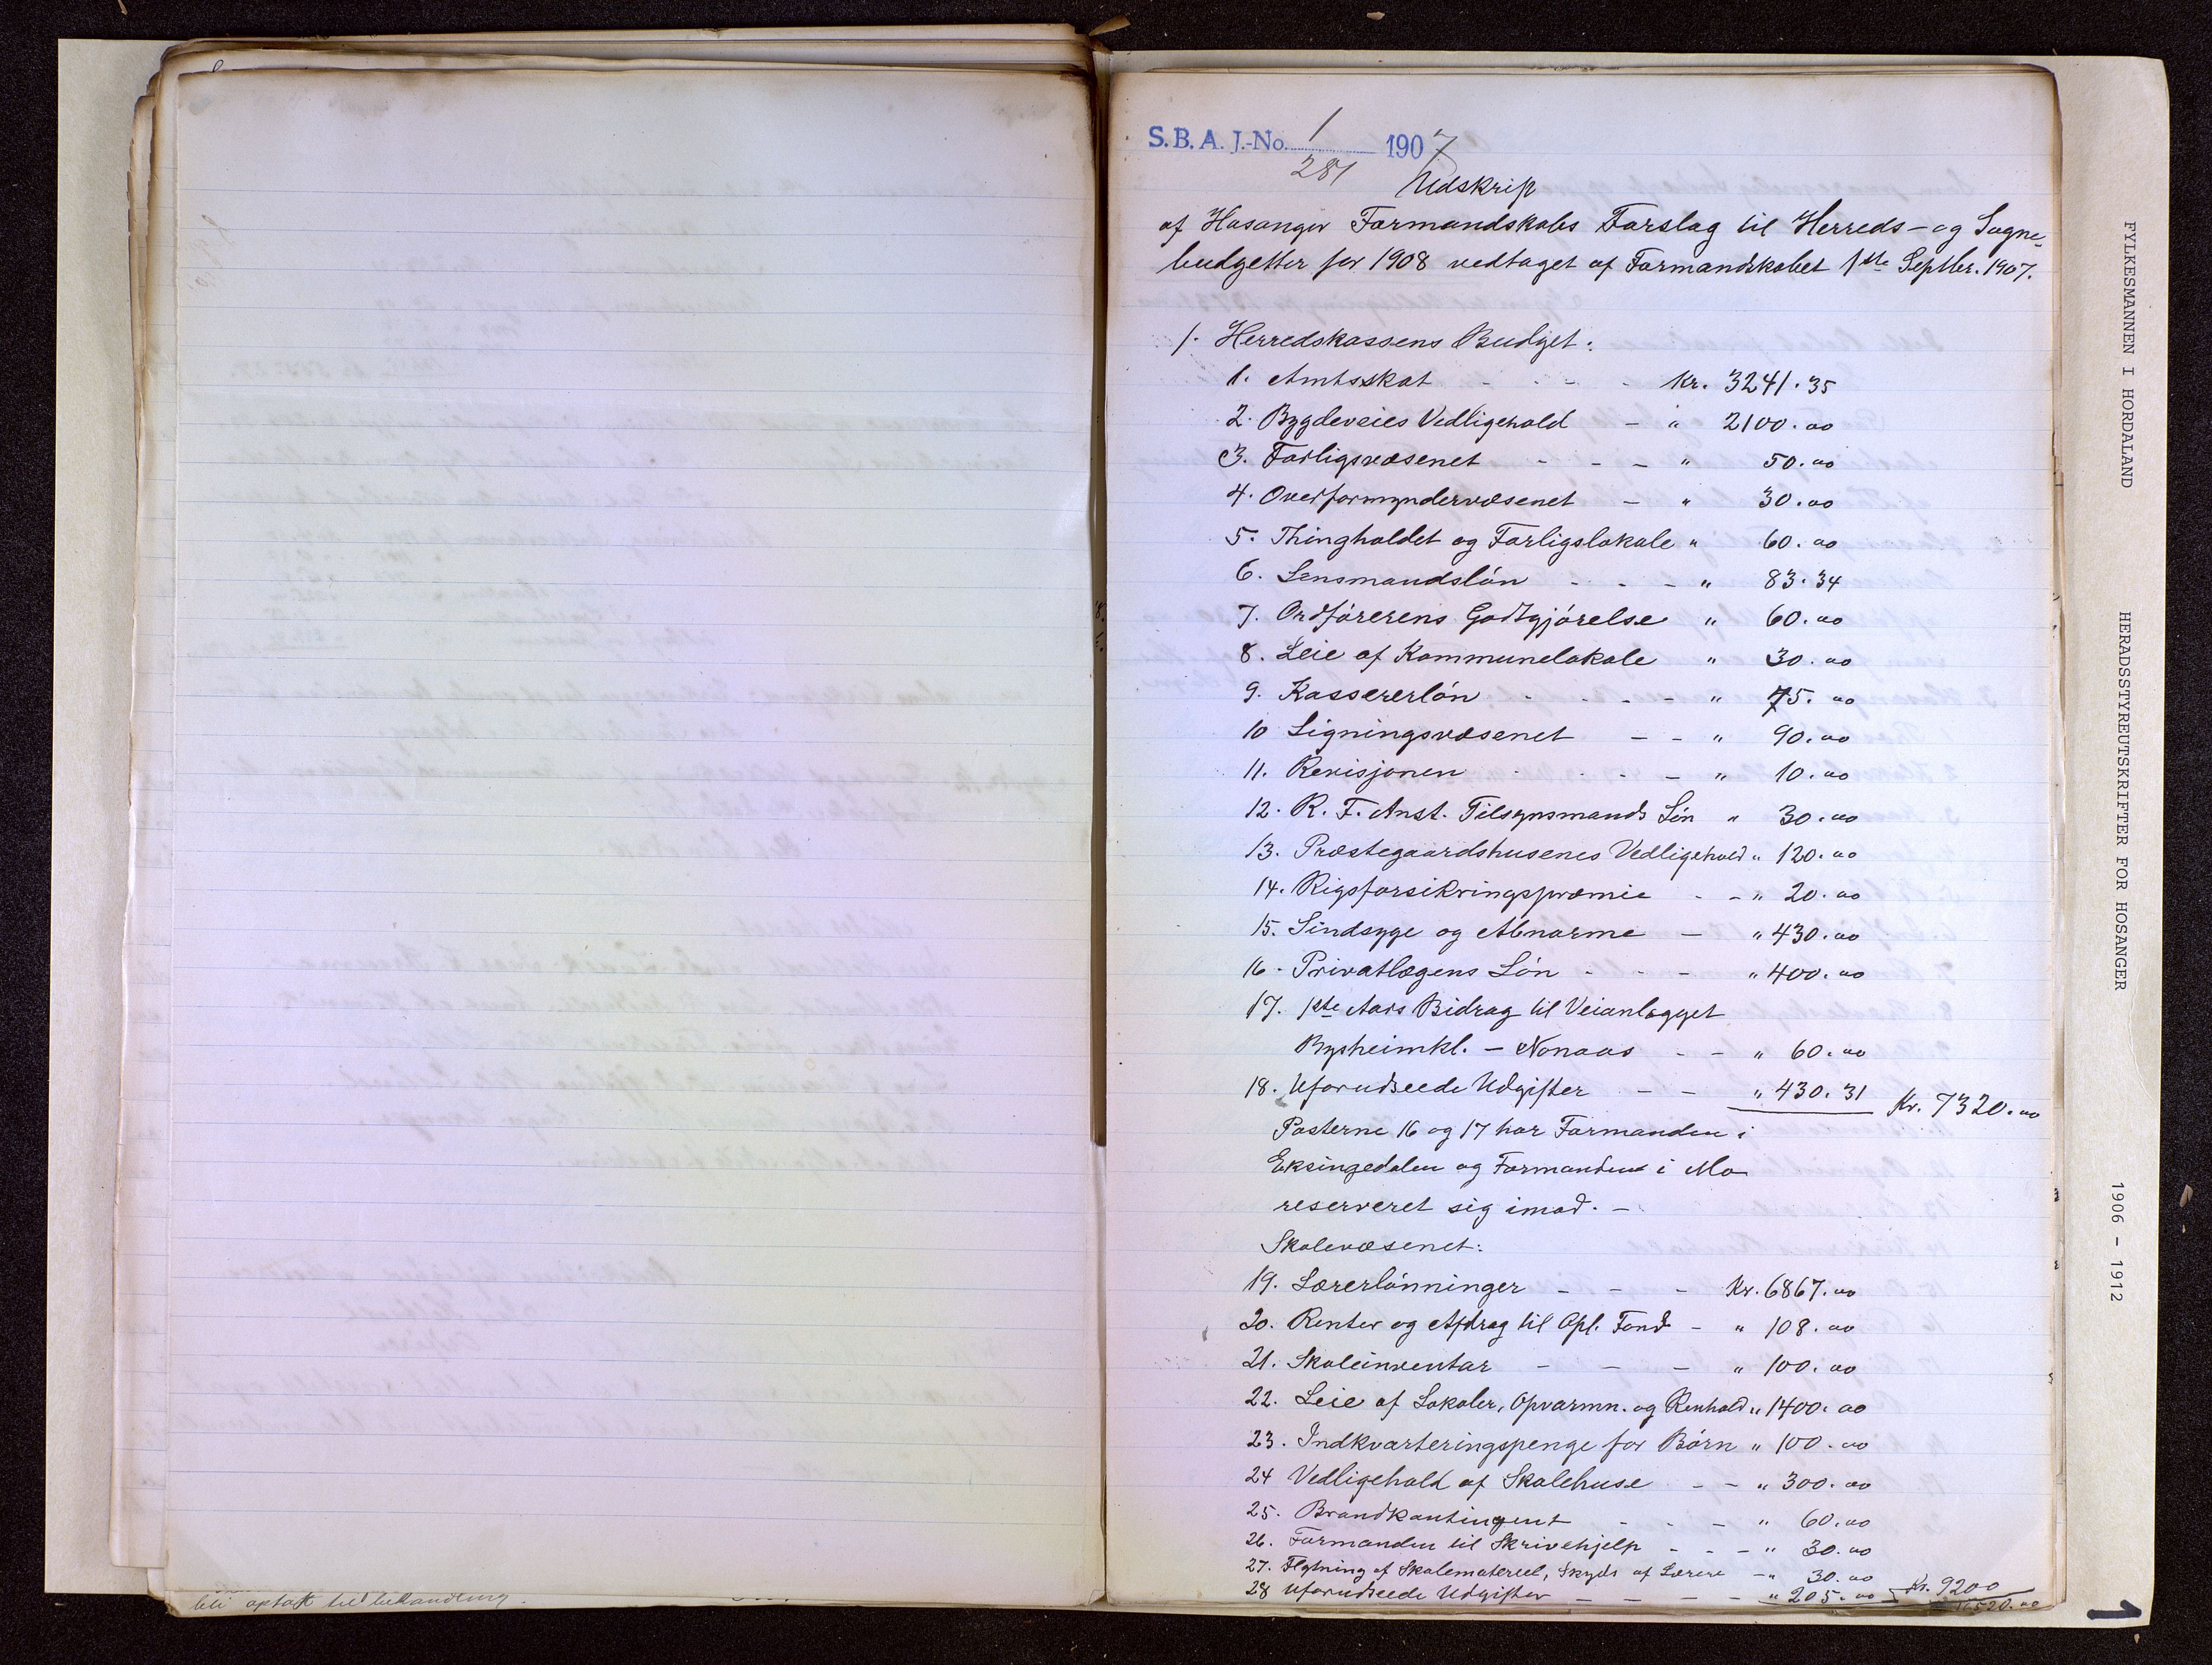 S.B.A. J.-No. 1 1907
281
Udskrip
af Hosanger Formandskabs Forslag til Herreds- og Sogne-
budgetter for 1908 vedtaget af Formandskabet 1ste Septber. 1907.
1. Herredskassens Budget:
1. Amtsskat - - - - Kr. 3241.35
2. Bygdeveies Vedligehold - " 2100.00
3. Forligsvæsenet - - - " 50.00
4. Overformyndervæsenet - " 30.00
5. Thingholdet og Forligslokale " 60.00
6. Lensmandsløn - - - " 83.34
7. Ordførerens Godtgjørelse " 60.00
8. Leie af Kommunelokale " 30.00
9. Kassererløn - - - - " 75.00
10 Ligningsvæsenet - - " 90.00
11. Revisjonen - - - - " 10.00
12. R. F. Anst. Tilsynsmands Løn " 30.00
13. Præstegaardshusenes Vedligehold " 120.00
14. Rigsforsikringspræmie - - " 20.00
15. Sindsyge og Abnorme - " 430.00
16. Privatlægens Løn - - - " 400.00
17. 1ste Aars Bidrag til Veianlægget
Bysheimkl. - Nonaas - - " 60.00
18. Uforudseede Udgifter - - " 430.31 Kr. 7320.00
Posterne 16 og 17 har Formanden i
Eksingedalen og Formanden i Mo
reserveret sig imod. -
Skolevæsenet:
19. Lærerlønninger - - - Kr. 6867.00
20. Renter og Afdrag til Opl. Fond - " 108.00
21. Skoleinventar - - - " 100.00
22. Leie af Lokaler, Opvarmn. og Renhold " 1400.00
23. Indkvarteringspenge for Børn " 100.00
24 Vedligehold af Skolehuse - - " 300.00
25. Brandkontingent - - - " 60.00
26. Formanden til Skrivehjelp - - - " 30.00
27. Flytning af Skolemateriel, Skyds af Lærere - " 30.00
28 Uforudseede Udgifter - - - - " 205.00 Kr. 9200
16520.00
bli optatt til behandling.
FYLKESMANNEN I HORDALAND
HERADSSTYREUTSKRIFTER FOR HOSANGER
1906 - 1912
1